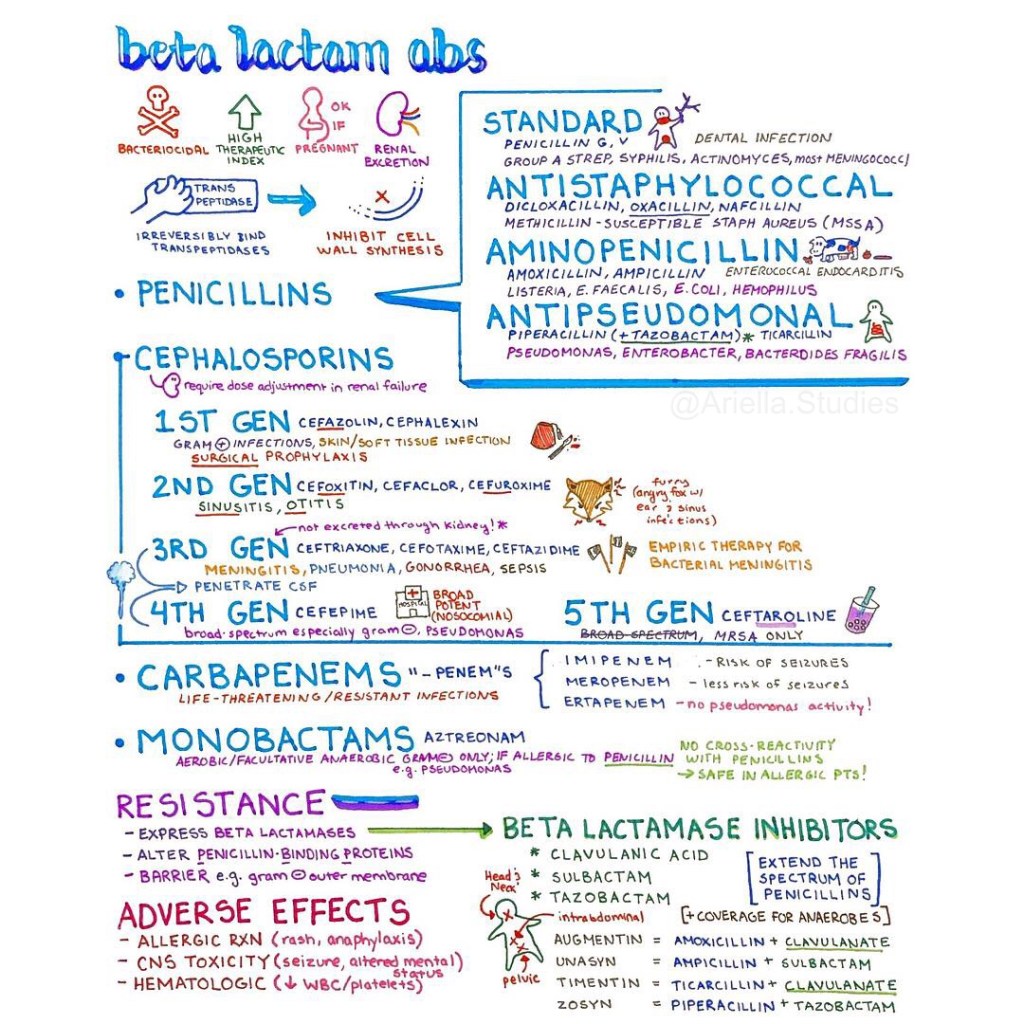 beta lactam abs
BACTERIOCIDAL
HIGH
THERAPEUTIC
INDEX
OK
IF
PREGNANT
RENAL
EXCRETION
TRANS
PEPTIDASE
IRREVERSIBLY BIND
TRANSPEPTIDASES
INHIBIT CELL
WALL SYNTHESIS
• PENICILLINS
STANDARD
PENICILLIN G, V
DENTAL INFECTION
GROUP A STREP, SYPHILIS, ACTINOMYCES, most MENINGOCOCCI
ANTISTAPHYLOCOCCAL
DICLOXACILLIN, OXACILLIN, NAFCILLIN
METHICILLIN-SUSCEPTIBLE STAPH AUREUS (MSSA)
AMINOPENICILLIN
AMOXICILLIN, AMPICILLIN ENTEROCOCCAL ENDOCARDITIS
LISTERIA, E. FAECALIS, E. COLI, HEMOPHILUS
ANTIPSEUDOMONAL
PIPERACILLIN (+ TAZOBACTAM)* TICARCILLIN
PSEUDOMONAS, ENTEROBACTER, BACTEROIDES FRAGILIS
@Ariella.Studies
CEPHALOSPORINS
require dose adjustment in renal failure
1ST GEN CEFAZOLIN, CEPHALEXIN
GRAM ⊕ INFECTIONS, SKIN/SOFT TISSUE INFECTION
SURGICAL PROPHYLAXIS
2ND GEN CEFOXITIN, CEFACLOR, CEFUROXIME
SINUSITIS, OTITIS
furry
(angry fox w/
ear & sinus
infections)
not excreted through kidney!*
3RD GEN CEFTRIAXONE, CEFOTAXIME, CEFTAZIDIME
MENINGITIS, PNEUMONIA, GONORRHEA, SEPSIS
EMPIRIC THERAPY FOR
BACTERIAL MENINGITIS
PENETRATE CSF
4TH GEN CEFEPIME
HOSPITAL
BROAD
POTENT
(NOSOCOMIAL)
broad-spectrum especially gram ⊖, PSEUDOMONAS
5TH GEN CEFTAROLINE
BROAD-SPECTRUM, MRSA ONLY
• CARBAPENEMS "-PENEM"S
LIFE-THREATENING / RESISTANT INFECTIONS
IMIPENEM - RISK OF SEIZURES
MEROPENEM - less risk of seizures
ERTAPENEM - no pseudomonas activity!
• MONOBACTAMS AZTREONAM
AEROBIC/FACULTATIVE ANAEROBIC GRAM ⊖ ONLY; IF ALLERGIC TO PENICILLIN
e.g. PSEUDOMONAS
NO CROSS-REACTIVITY
WITH PENICILLINS
→ SAFE IN ALLERGIC PTS!
RESISTANCE
- EXPRESS BETA LACTAMASES
- ALTER PENICILLIN-BINDING PROTEINS
- BARRIER e.g. gram ⊖ outer membrane
ADVERSE EFFECTS
- ALLERGIC RXN (rash, anaphylaxis)
- CNS TOXICITY (seizure, altered mental status)
- HEMATOLOGIC (↓ WBC/platelets)
BETA LACTAMASE INHIBITORS
* CLAVULANIC ACID
* SULBACTAM
* TAZOBACTAM
[EXTEND THE
SPECTRUM OF
PENICILLINS]
[+ COVERAGE FOR ANAEROBES]
Head &
Neck
intrabdominal
pelvic
AUGMENTIN = AMOXICILLIN + CLAVULANATE
UNASYN = AMPICILLIN + SULBACTAM
TIMENTIN = TICARCILLIN + CLAVULANATE
ZOSYN = PIPERACILLIN + TAZOBACTAM